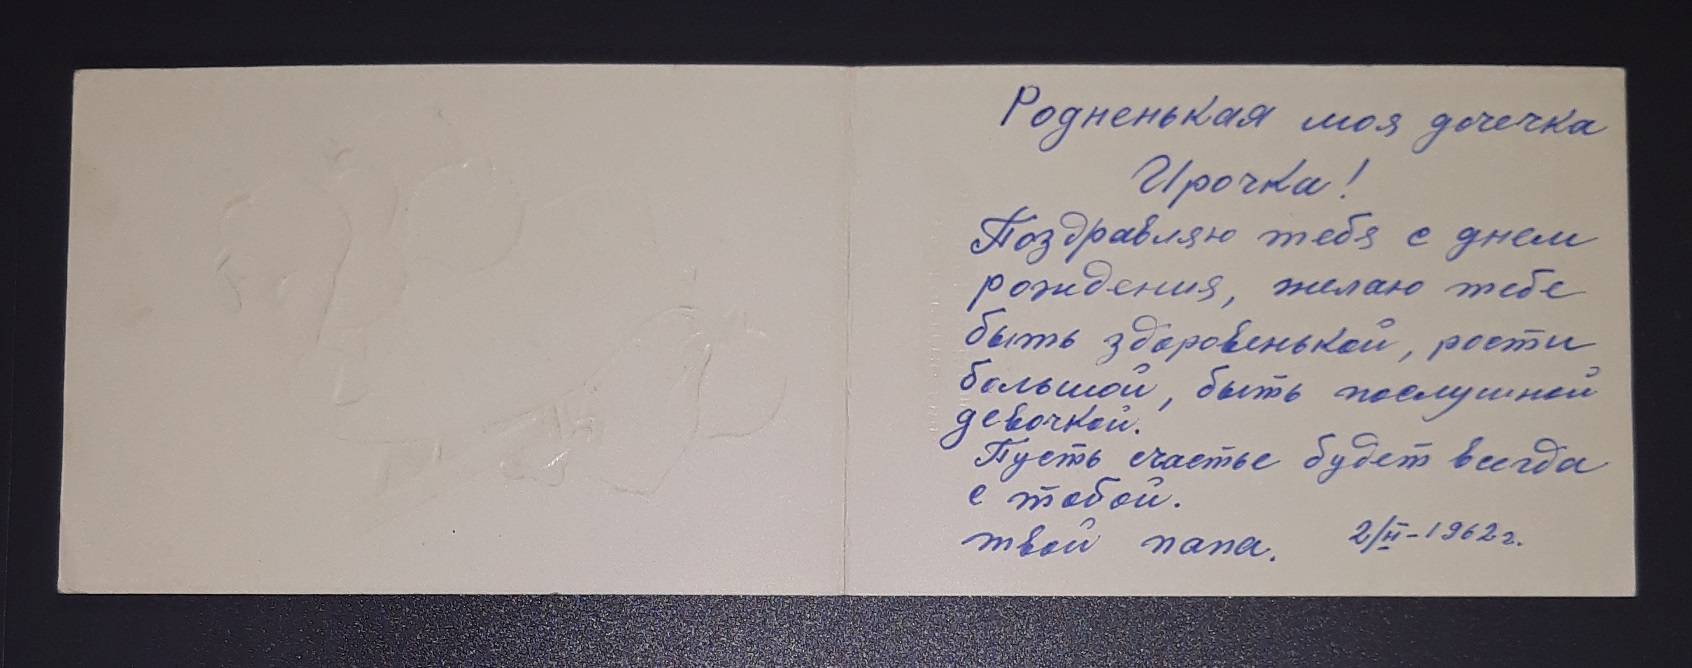 Родненькая моя дочечка
Ирочка!
Поздравляю тебя с днем
рождения, желаю тебе
быть здоровенькой, рости
большой, быть послушной
девочкой.
Пусть счастье будет всегда
с тобой.
твой папа. 2/II-1962г.